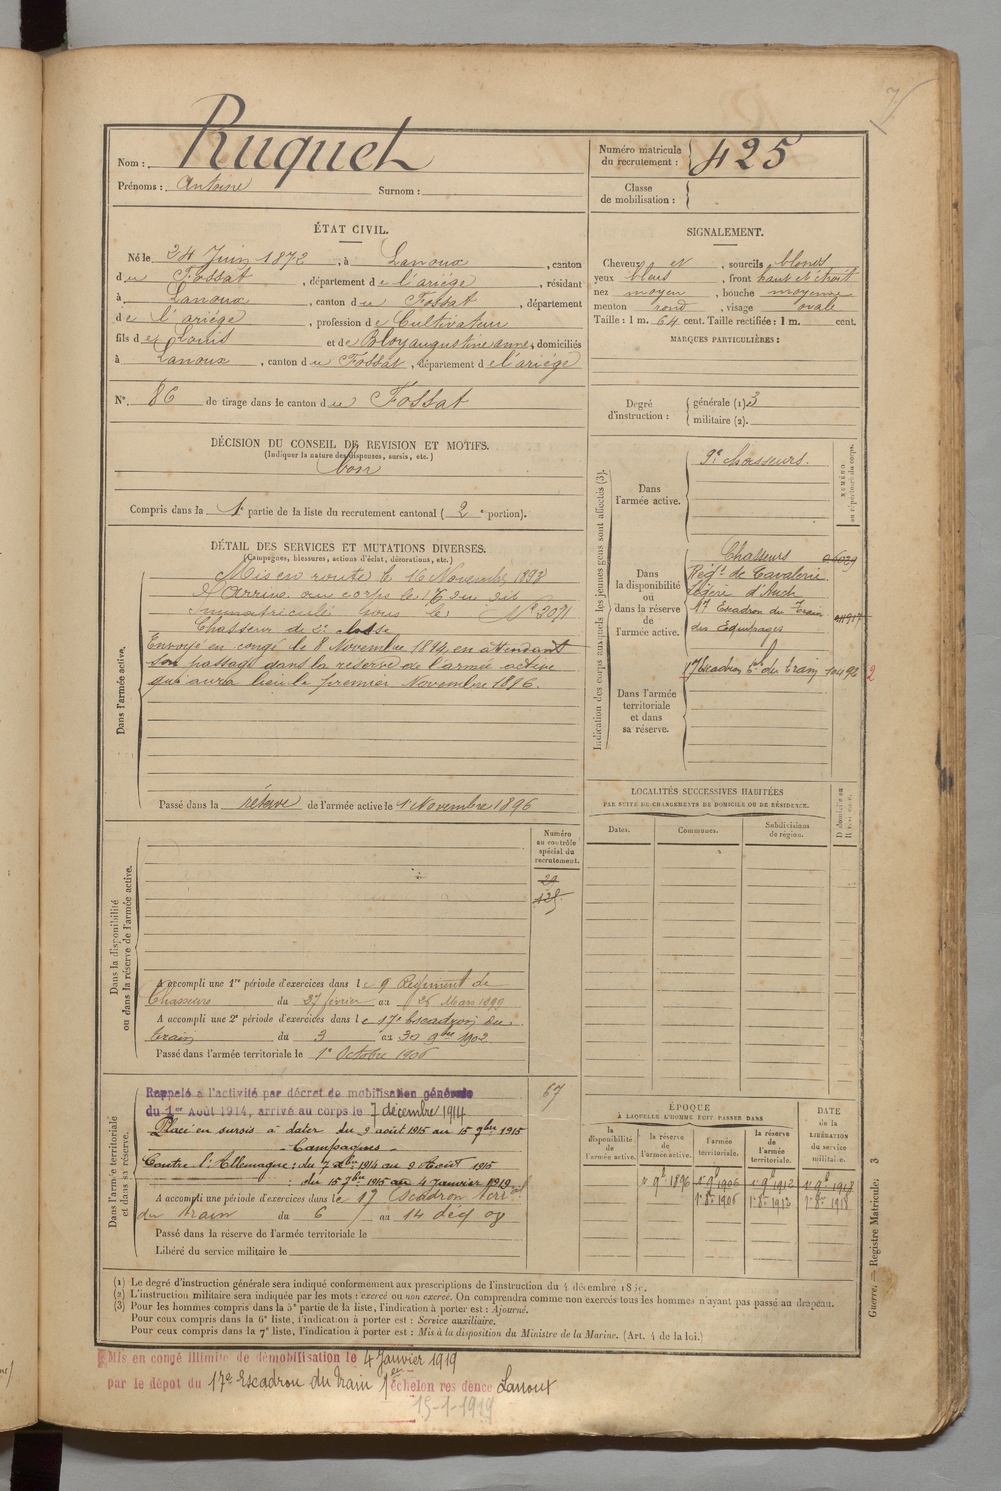 Nom : Ruquet
Prénoms : Antoine Surnom :
Numéro matricule du recrutement : 425
Classe de mobilisation :
ÉTAT CIVIL.
Né le 24 Juin 1872, à Lanoux, canton
du Fossat, département de l'ariège, résidant
à Lanoux, canton du Fossat, département
de l'ariège, profession de Cultivateur
fils de Louis et de Bloy augustine anne, domiciliés
à Lanoux, canton du Fossat, département de l'ariège
N°. 86 de tirage dans le canton du Fossat
DÉCISION DU CONSEIL DE REVISION ET MOTIFS.
(Indiquer la nature des dispenses, sursis, etc.)
bon
Compris dans la 1e partie de la liste du recrutement cantonal (2e portion).
SIGNALEMENT.
Cheveux et, sourcils blonds
yeux bleus, front haut et étroit
nez moyen, bouche moyenne
menton rond, visage ovale
Taille : 1 m. 64 cent. Taille rectifiée : 1 m. cent.
MARQUES PARTICULIÈRES :
Degré d'instruction : générale (1). 3
militaire (2).
DÉTAIL DES SERVICES ET MUTATIONS DIVERSES.
(Campagnes, blessures, actions d'éclat, décorations, etc.)
Dans l'armée active.
Mis en route le 16 Novembre 1893
Arrivé au corps le 16 du dit
immatriculé sous le N° 2071
Chasseur de 2e classe
Envoyé en congé le 8 Novembre 1894 en attendant
son passage dans la réserve de l'armée active
qui aura lieu le premier Novembre 1896.
Passé dans la réserve de l'armée active le 1 Novembre 1896
Indication des corps auxquels les jeunes gens sont affectés (3).
NUMÉRO au répertoire du corps.
Dans l'armée active.
9e Chasseurs.
Dans la disponibilité ou dans la réserve de l'armée active.
Chasseurs
Régt de Cavalerie
Légère d'Auch
17e Escadron du Train
des Equipages
Dans l'armée territoriale et dans sa réserve.
17 Escadron du train 10492
LOCALITÉS SUCCESSIVES HABITÉES
PAR SUITE DE CHANGEMENTS DE DOMICILE OU DE RÉSIDENCE.
Dates. Communes. Subdivisions de région.
Dans la disponibilité ou dans la réserve de l'armée active.
Numéro au contrôle spécial du recrutement.
A accompli une 1re période d'exercices dans le 9 Régiment de
Chasseurs du 27 février au 26 Mars 1899
A accompli une 2e période d'exercices dans le 17e Escadron du
train du 3 au 30 9bre 1902
Passé dans l'armée territoriale le 1e Octobre 1906
Dans l'armée territoriale et dans sa réserve.
Rappelé à l'activité par décret de mobilisation générale 67
du 1er Août 1914, arrivé au corps le 7 décembre 1914
Placé en sursis à dater du 9 août 1915 au 15 9bre 1915
Campagnes
Contre l'Allemagne : du 7 Xbre 1914 au 9 Août 1915
: du 15 9bre 1915 au 4 janvier 1919
A accompli une période d'exercices dans le 17 Escadron terrial
du train du 6 au 14 déc 09
Passé dans la réserve de l'armée territoriale le
Libéré du service militaire le
ÉPOQUE
À LAQUELLE L'HOMME DOIT PASSER DANS
la disponibilité de l'armée active. la réserve de l'armée active. l'armée territoriale. la réserve de l'armée territoriale.
DATE de la LIBÉRATION du service militaire.
1 9b 1896 1 9b 1906 1 9b 1912 1 9b 1918
1 8bre 1906 1 8bre 1912 1 8bre 1918
(1) Le degré d'instruction générale sera indiqué conformément aux prescriptions de l'instruction du 4 décembre 18
(2) L'instruction militaire sera indiquée par les mots : exercé ou non exercé. On comprendra comme non exercés tous les hommes n'ayant pas passé au drapeau.
(3) Pour les hommes compris dans la 5e partie de la liste, l'indication à porter est : Ajourné.
Pour ceux compris dans la 6e liste, l'indication à porter est : Service auxiliaire.
Pour ceux compris dans la 7e liste, l'indication à porter est : Mis à la disposition du Ministre de la Marine. (Art. 4 de la loi.)
Guerre. — Registre Matricule. 3
Mis en congé illimité de démobilisation le 4 Janvier 1919
par le dépot du 17e Escadron du Train 1er échelon résidence Lanoux
15-1-1919